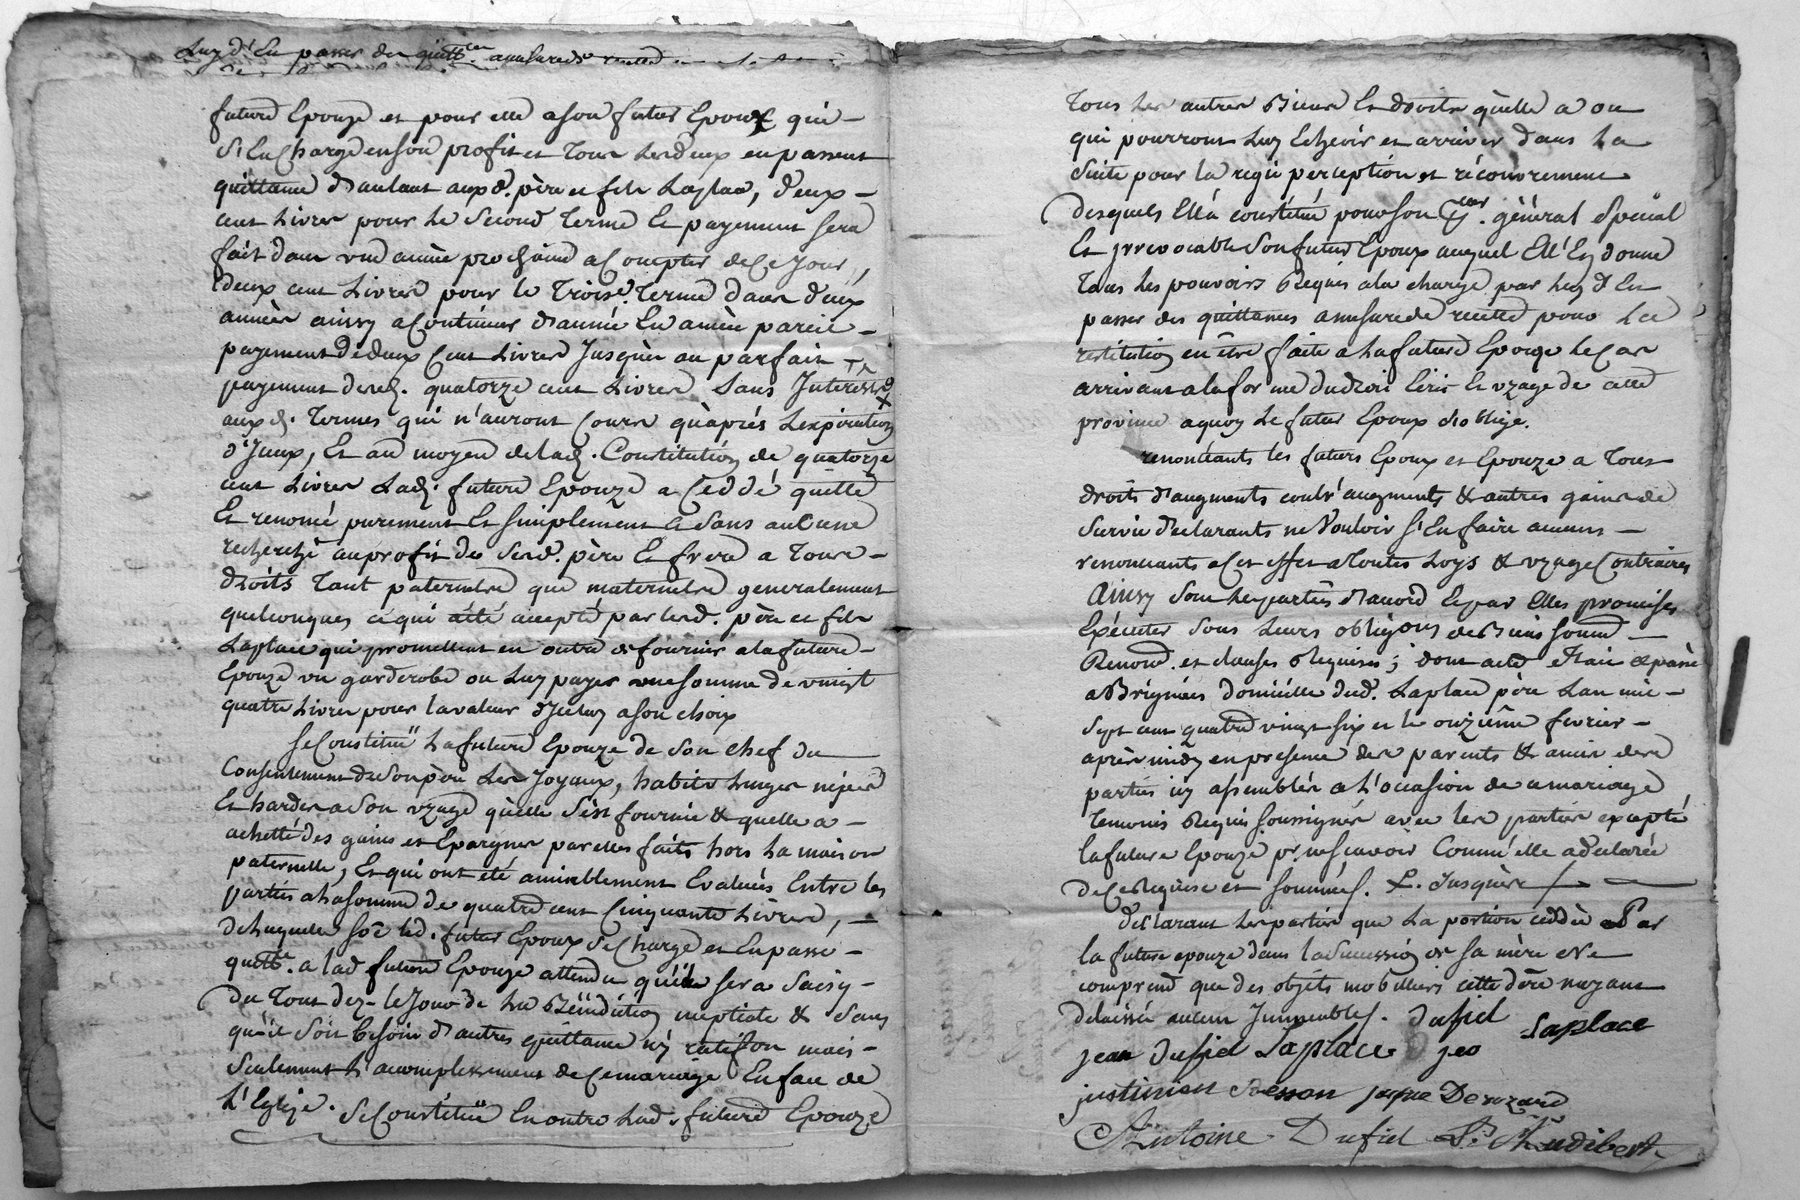 Luy d'En passer des quittces amesurede recette
future Epouze et pour elle a son futur Epoux qui
s'En Charge en son profit et Tous Lesdeux en passent
quittance d'autant auxd. père et fils Laplace, d'eux
cent Livres pour Le Second Terme Et payement sera
fait dans une année prochaine a Compter de Ce Jour,
deux cent Livres pour le Troise. Terme dans deux
années ainsy a Continuer d'année En année pareil
payement de deux Cent Livres Jusques au parfait
payement desd. quatorze cent Livres Sans Interest
auxd. Termes qui n'auront Cours qu'après Lexpiration
d'Iceux, Et au moyen de lad. Constitution de quatorze
cent Livres Lad. future Epouze a Ceddé quitté
Et renoncé purement Et simplement Et Sans aucune
recherche au profit des Sesd. père Et frere a Tous
droits Tant paternels que maternels generalement
quelconques ce qui a été accepté par lesd. père et fils
Laplace qui promettent en outre de fournir a la future
Epouze un garderobe ou Luy payer une somme de vingt
quatre Livres pour la valeur d'Iceluy a son choix
Se Constitue La future Epouze de Son chef du
Consentement du Son père Les Joyaux, habits Linges
Et hardes a Son uzage qu'elle S'est fournie & quelle a
achetté des gains et Epargnes par elles faits hors La maison
paternelle, Et qui ont été amiablement Evalués Entre les
parties a la somme de quatre cent Cinquante Livres,
de Laquelle soe led. futur Epoux Se Charge et En passe
quittce. a lad future Epouze attendu qu'il sera Saisy
du Tout dez le Jour de La Bénédiction nuptiale & Sans
qu'il Soit besoin d'autres quittance ny ratifion mais
Seulement L'acomplissement de Ce mariage En face de
L'Eglize. Se Constitue En outre Lad. future Epouze
Tous Les autres Biens Et droits qu'elle a ou
qui pourront Luy Echeoir et arriver dans La
Suite pour la régie perception et récouvrement
desquels Ell'a constitué pour son Pcur. général Spécial
Et irrevocable Son futur Epoux auquel Ell'En donne
Tous Les pouvoirs Requis a la charge par Luy d'En
passer des quittances amesurede recette pour La
restitution en être faite a La future Epouze Le Cas
arrivant a la forme du droit Ecrit Et uzage de cette
province a quoy Le futur Epoux s'oblige.
renoncants les futurs Epoux et Epouze a Tous
droits d'augments contr'augments & autres gains de
Survie declarants ne Vouloir S'En faire aucuns
renoncants a Cet effet a Toutes Loys & uzages Contraires
Ainsy Sont Les parties d'acord Et par Elles promises
Exécuter Sous Leurs obligons de Biens Soumd.
Renond. et clauses Requises; dont acte Fait & passé
a Brignais domicille dud. Laplace père L'an mil
Sept cent quatre vingt six et le onzième fevrier
après midy en presence des parents & amis des
parties icy assemblés a L'occasion de ce mariage
Temoins Requis soussignés avec les parties excepté
la future Epouze pr. ne scavoir Comme elle a declarée
de Ce Requise et sommés. L. Jusquiere
declarant Les parties que La portion ceddée Par
la future epouze dans la Sucession de sa mère Ne
comprend que des objéts mobilliers cette d.ere n'ayant
delaissé aucun Immeubles. Dufiel Laplace
jean Dufiel Laplace
justinien
Antoine Dufiel P. Audibert